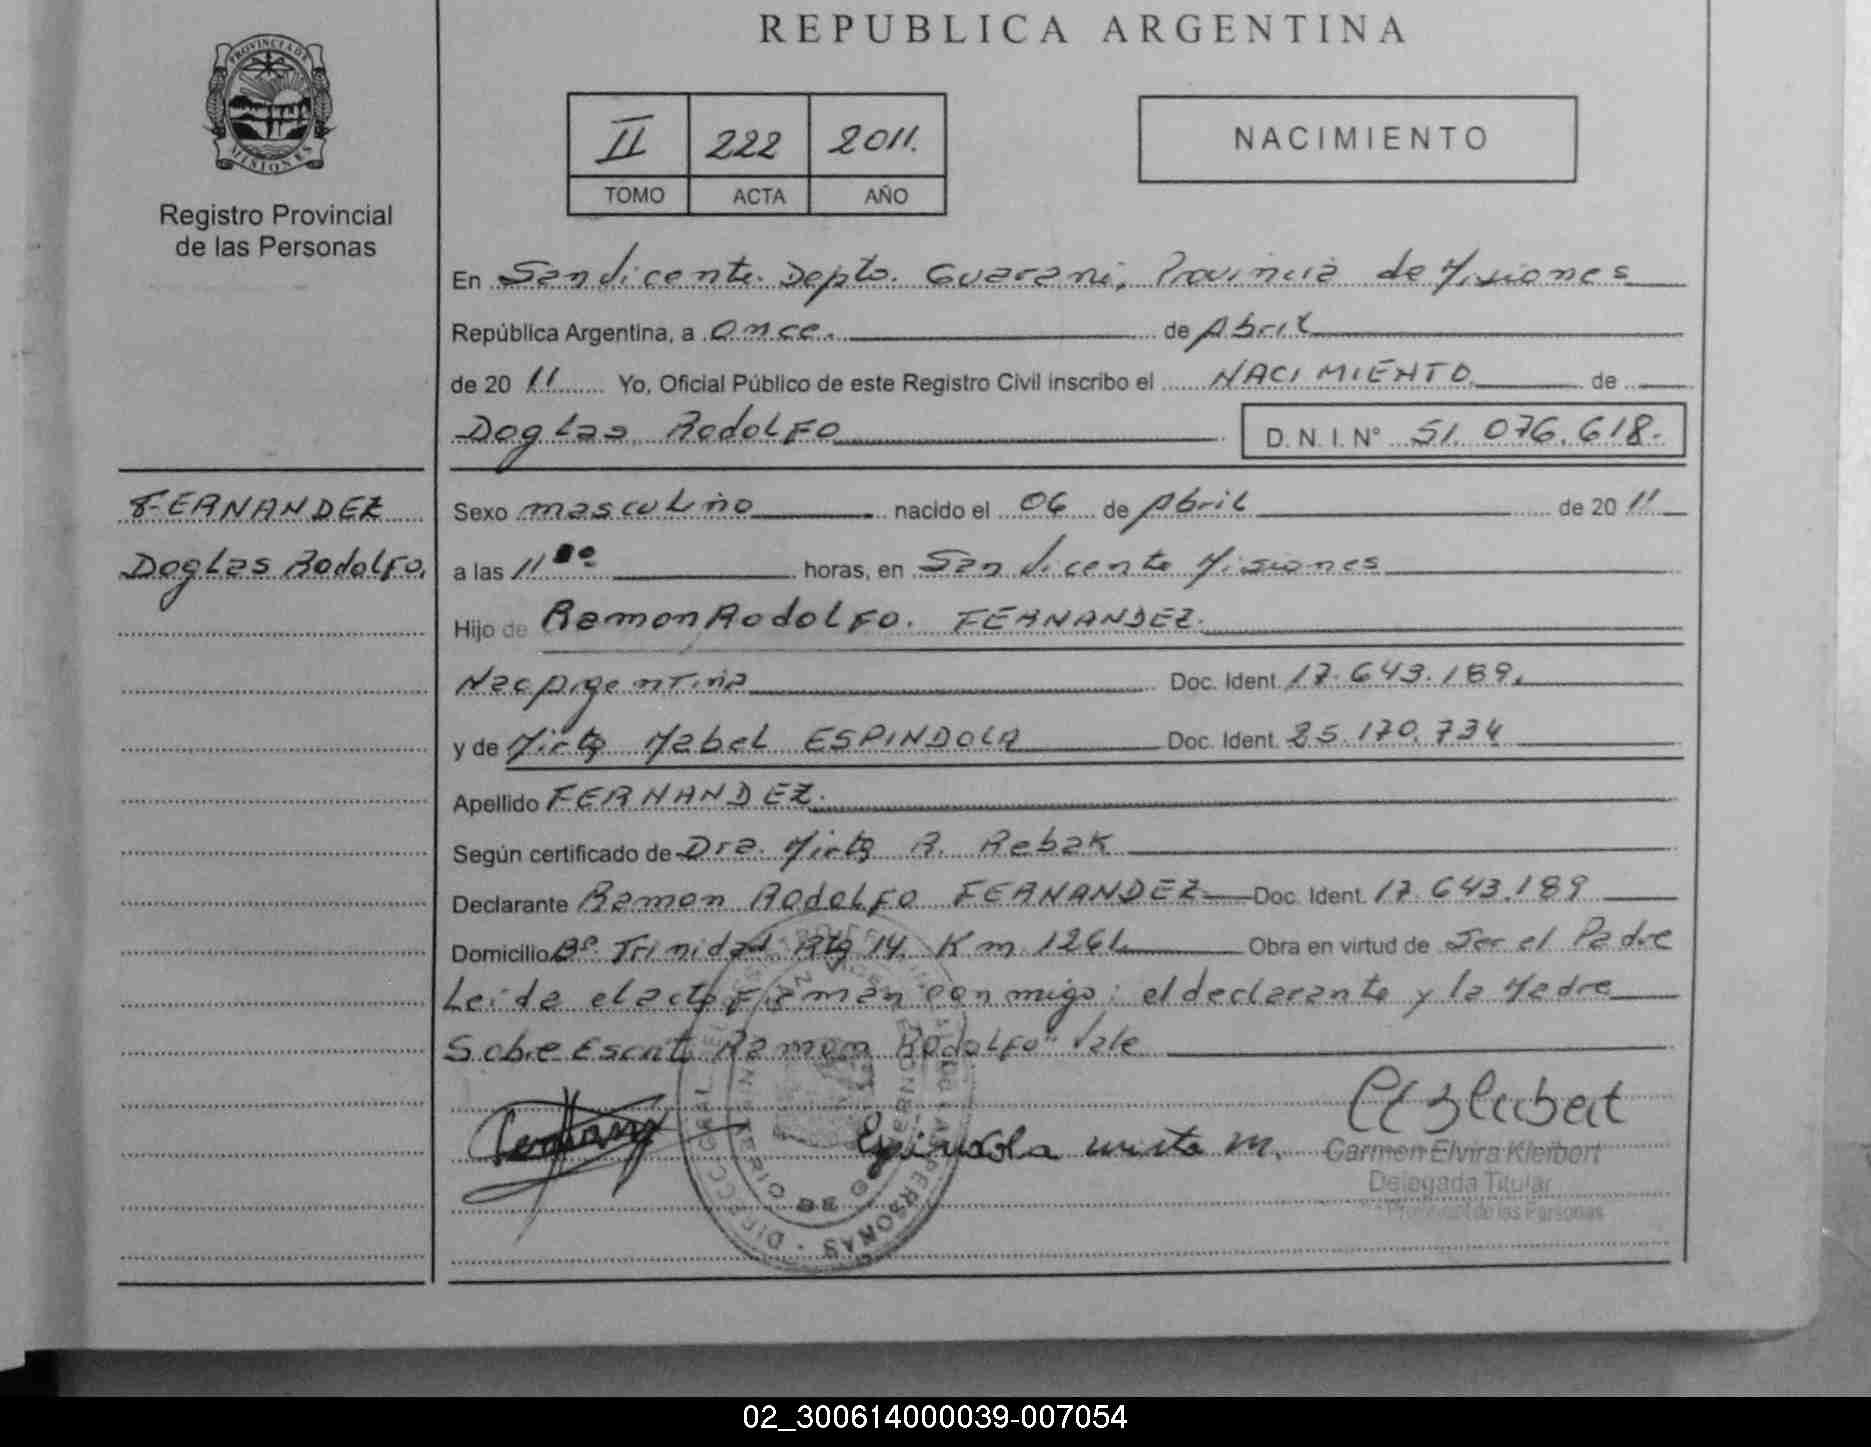 REPUBLICA ARGENTINA
PROVINCIA DE
MISIONES
Registro Provincial
de las Personas
II 222 2011.
TOMO ACTA AÑO
NACIMIENTO
En San Vicente. Depto. Guarani, Provincia de Misiones
República Argentina, a once. de Abril
de 2011 Yo, Oficial Público de este Registro Civil inscribo el NACIMIENTO de
Doglas Rodolfo D.N.I. N° 51.076.618.-
FERNANDEZ
Doglas Rodolfo.
Sexo masculino nacido el 06 de Abril de 2011
a las 11 horas, en San Vicente Misiones
Hijo de Ramon Rodolfo. FERNANDEZ.
Nac Argentina Doc. Ident. 17.643.189.
y de Mirta Mabel ESPINDOLA Doc. Ident. 25.170.734
Apellido FERNANDEZ.
Según certificado de Dra. Mirta R. Rebak
Declarante Ramon Rodolfo FERNANDEZ Doc. Ident. 17.643.189
Domicilio B° Trinidad Rta 14. Km 1261 Obra en virtud de Ser el Padre
Leida el acta Firman conmigo: el declarante y la Madre
Sobre Escrit. Ramon Rodolfo" Vale
Espindola mirta M.
Carmen Elvira Kleibort
Delegada Titular
de las Personas
PERSONAS
02_300614000039-007054